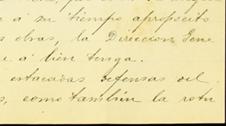 e á su tiempo apropósito
s obras, la Direccion Gene
e á bien tenga.
estacadas defensas del
s, como tambien la rotu